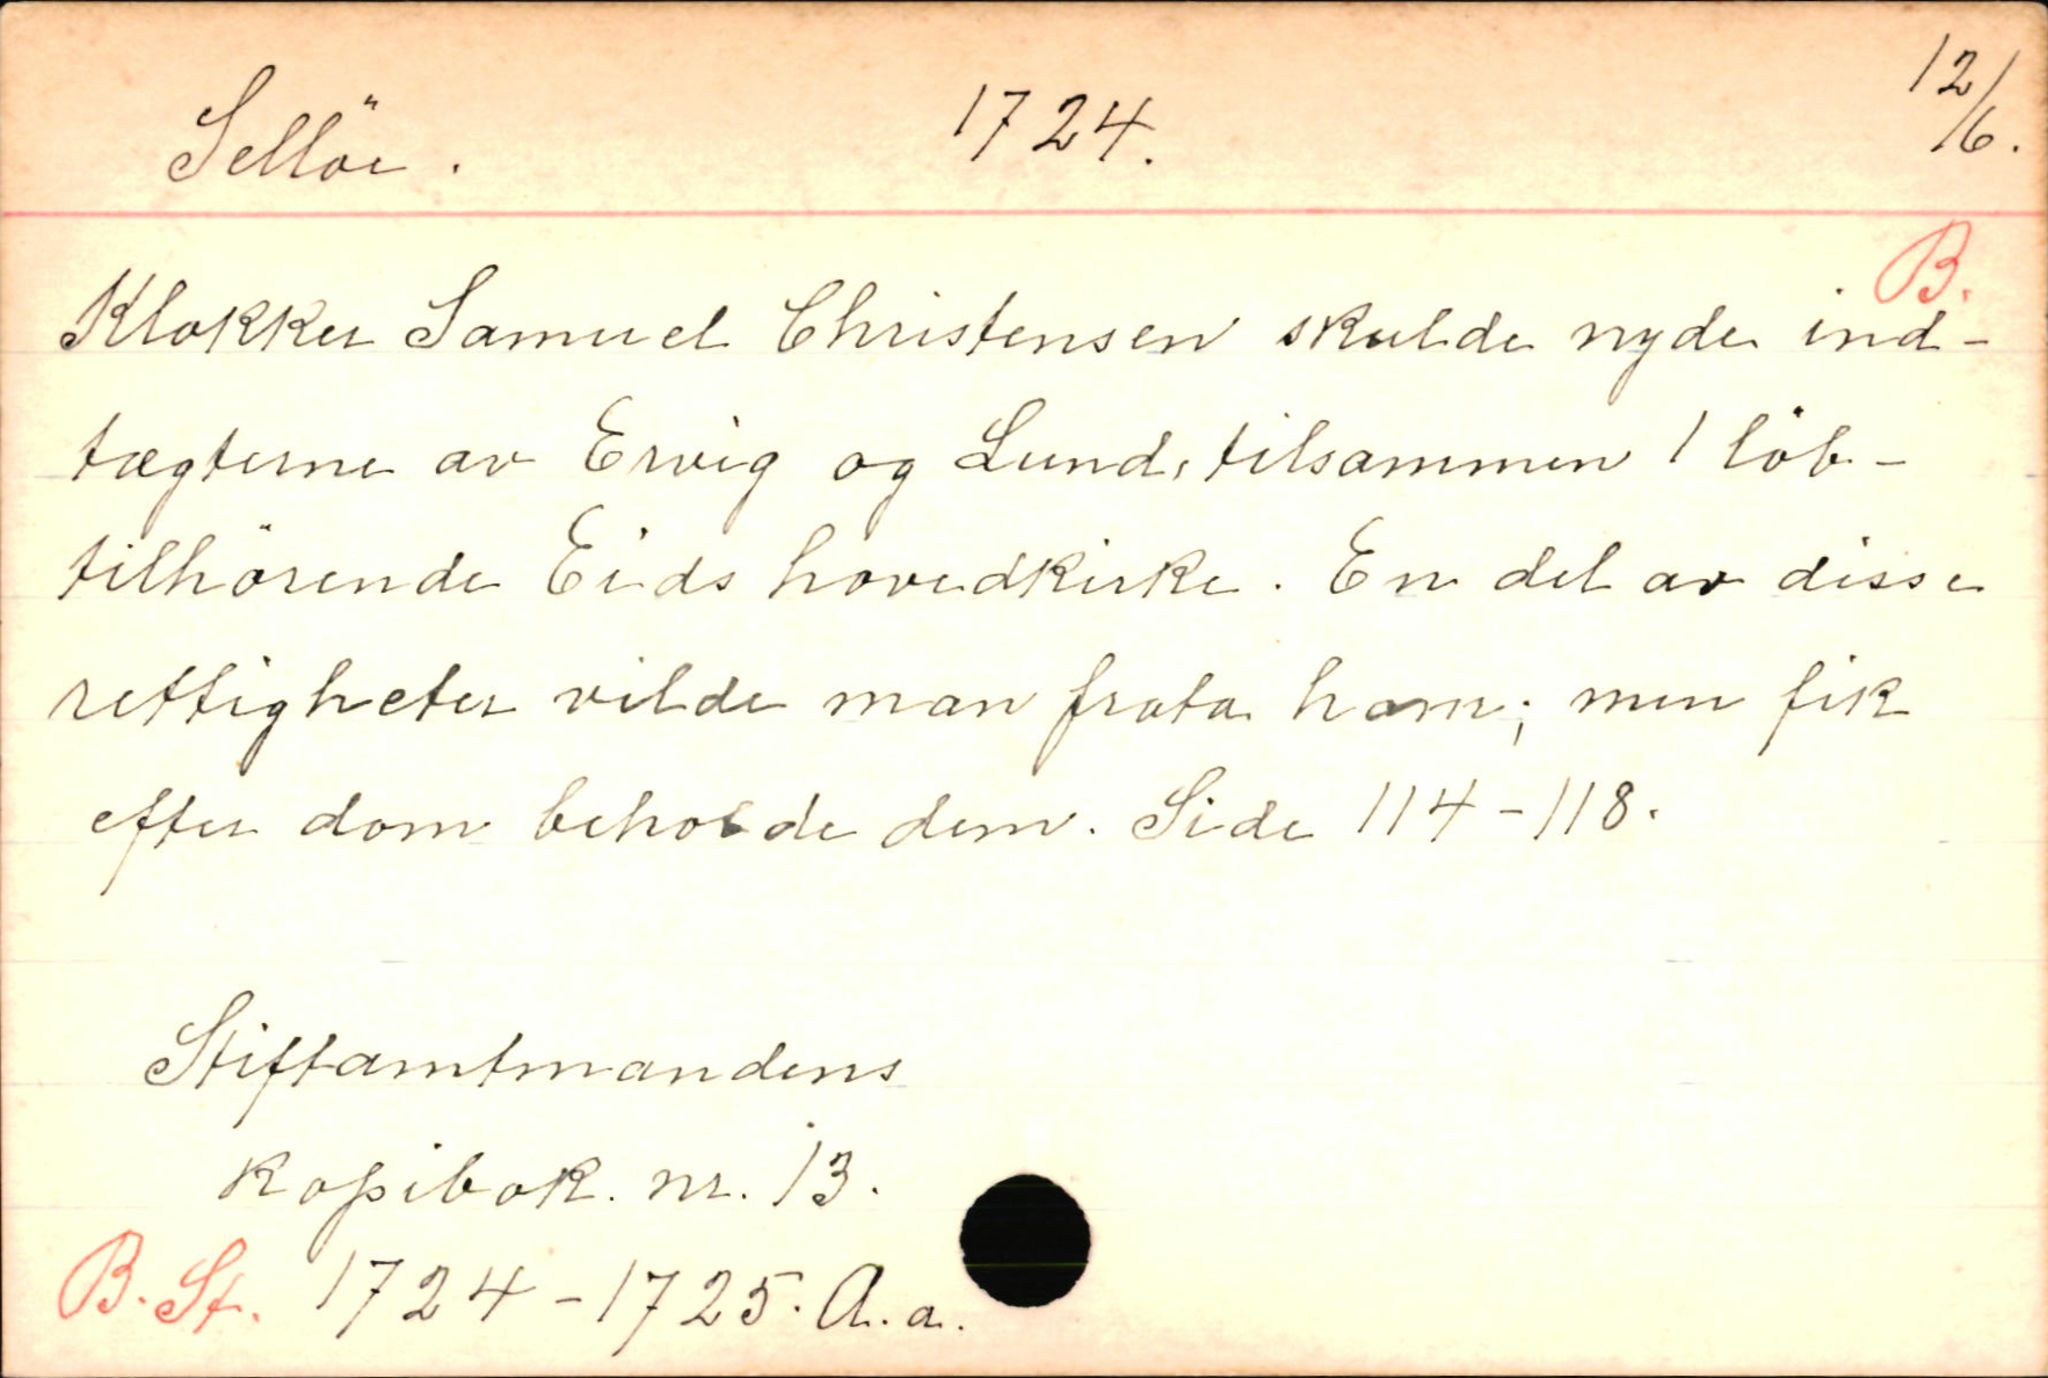 Sellöe. 1724. 12/6.
B.
Klokker Samuel Christensen skulde nyde ind-
tægterne av Ervig og Lund, tilsammen 1 löb-
tilhörende Eids hovedkirke. En del av disse
rettigheter vilde man frata ham; men fik
efter dom beholde dem. Side 114-118.
Stiftamtmandens
kopibok. nr. 13.
B. St. 1724-1725. A.a.